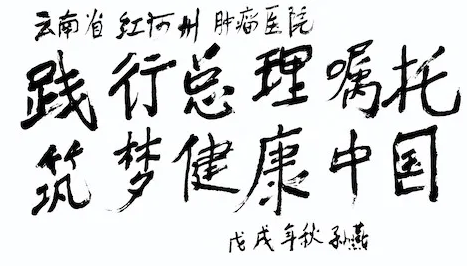 云南省红河州肿瘤医院
践行总理嘱托
筑梦健康中国
戊戌年秋孙燕